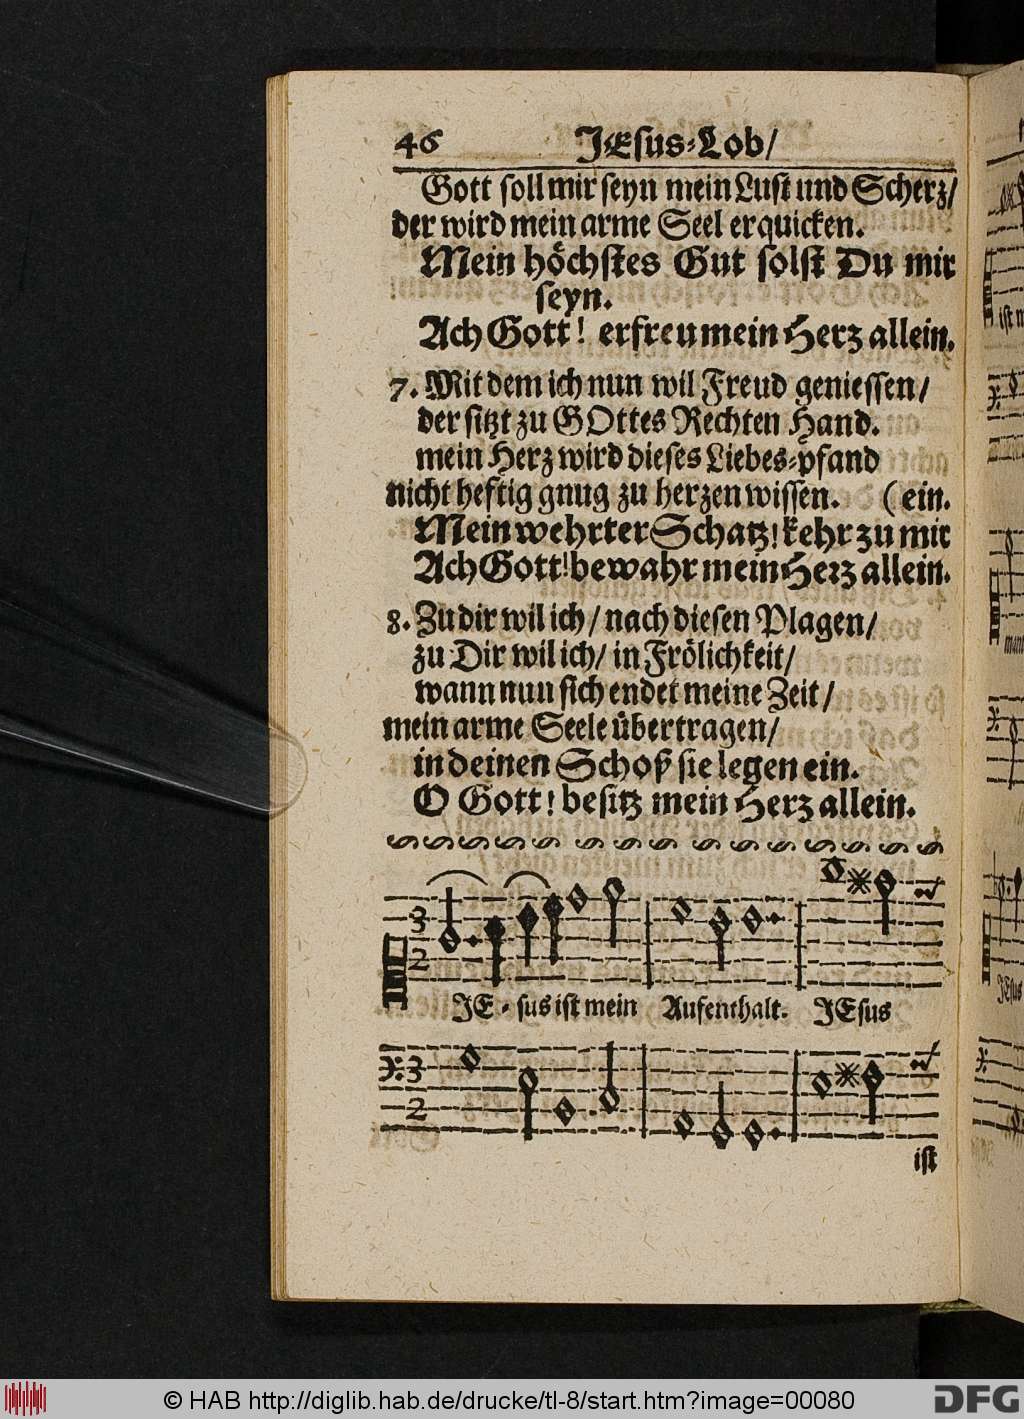 46 JEsus-Lob/
Gott soll mir seyn mein Lust und Scherz/
der wird mein arme Seel erquicken.
Mein höchstes Gut solst Du mir
seyn.
Ach Gott! erfreu mein Herz allein.
7. Mit dem ich nun wil Freud geniessen/
der sitzt zu GOttes Rechten Hand.
mein Herz wird dieses Liebes-pfand
nicht heftig gnug zu herzen wissen. (ein.
Mein wehrter Schatz! kehr zu mir
Ach Gott! bewahr mein Herz allein.
8. Zu dir wil ich/ nach diesen Plagen/
zu Dir wil ich/ in Frölichkeit/
wann nun sich endet meine Zeit/
mein arme Seele übertragen/
in deinen Schoß sie legen ein.
O Gott! besitz mein Herz allein.
3
2
JE-sus ist mein Aufenthalt. JEsus
3
2
ist
© HAB http://diglib.hab.de/drucke/tl-8/start.htm?image=00080
DFG